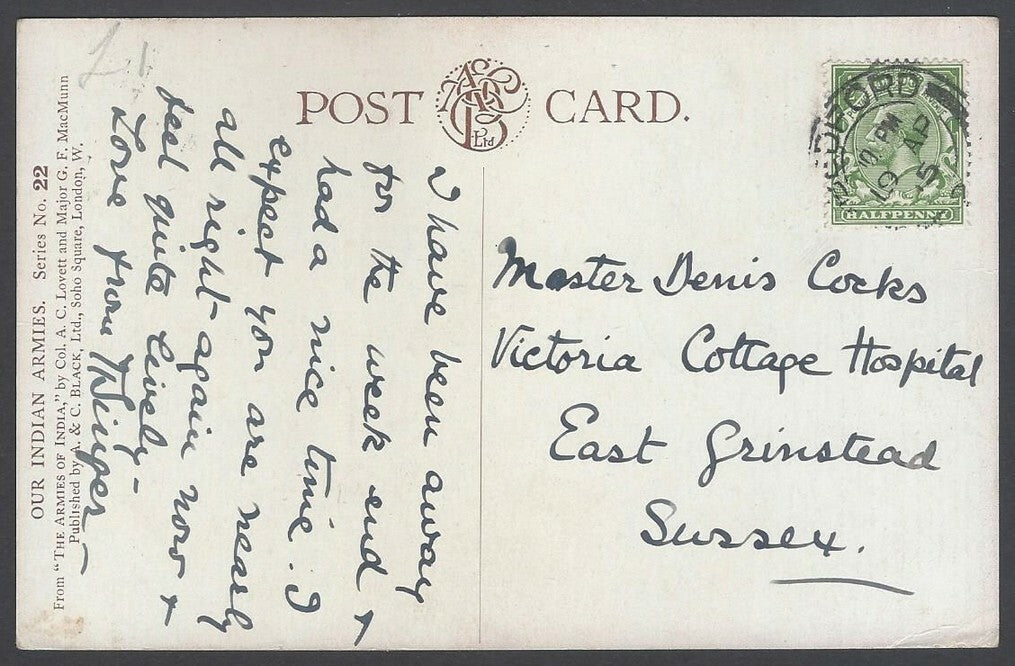 POST CARD.
A & C B Ltd
OUR INDIAN ARMIES. Series No. 22
From "THE ARMIES OF INDIA," by Col. A. C. Lovett and Major G. F. MacMunn
Published by A. & C. BLACK, Ltd., Soho Square, London, W.
£1
I have been away
for the week end &
had a nice time. I
expect you are nearly
all right again now &
feel quite lively -
Love from
10 PM
19 AP
15
HALFPENNY
Master Denis Cocks
Victoria Cottage Hospital
East Grinstead
Sussex.